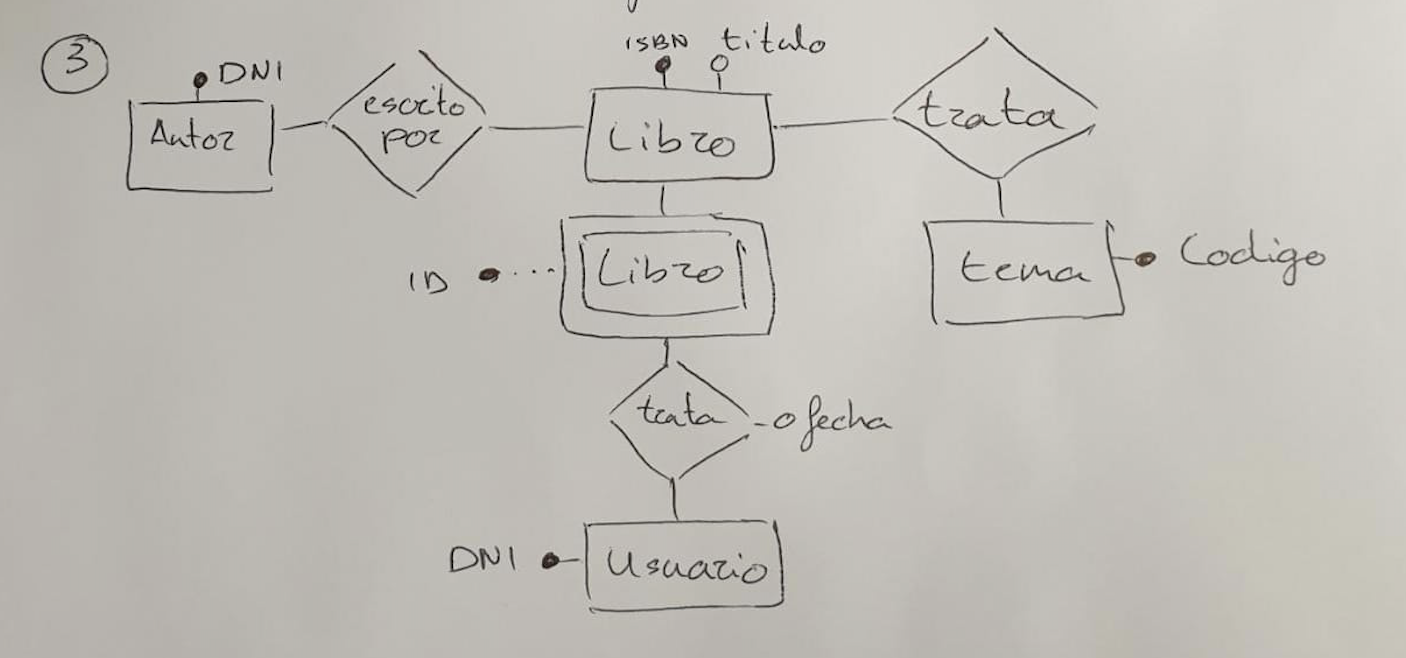 3
DNI
Autor
escrito
por
ISBN titulo
Libro
trata
ID
Libro
tema
Codigo
trata
fecha
DNI
Usuario